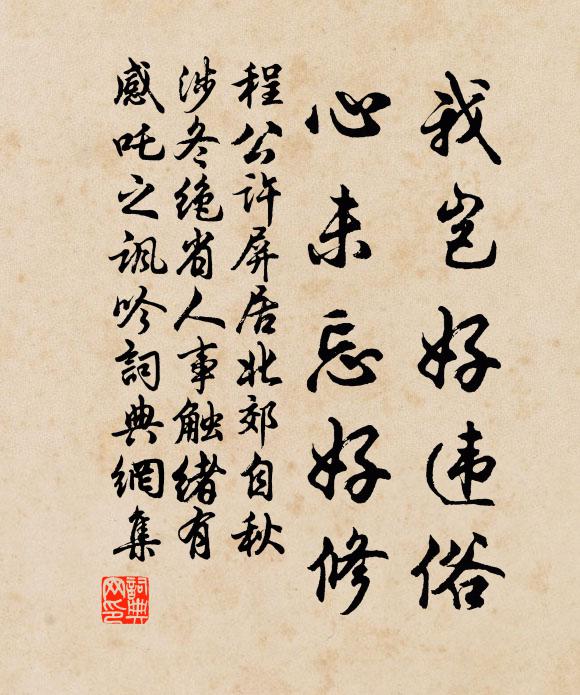 我岂好违俗
心未忘好修
程公许屏居北郊自秋
涉冬绝省人事触绪有
感吒之讽吟詞典網集
詞典網印